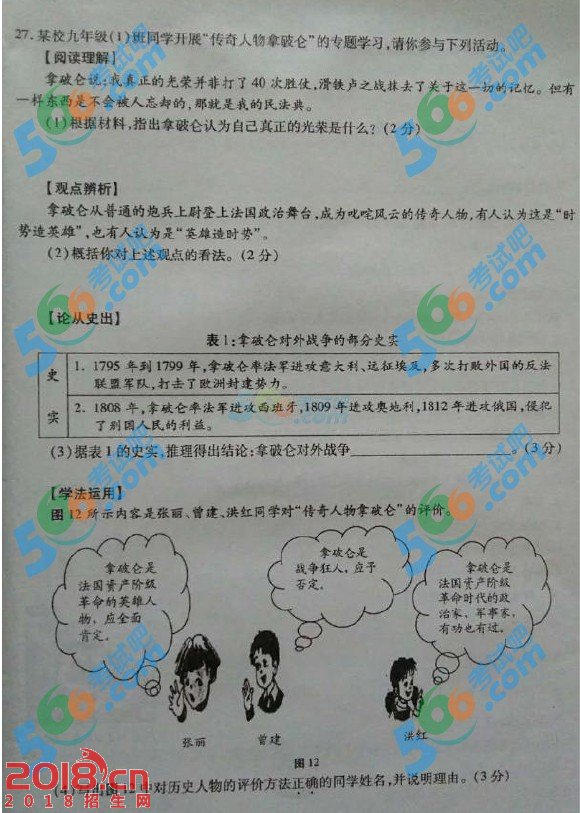 27.某校九年级(1)班同学开展“传奇人物拿破仑”的专题学习,请你参与下列活动。
【阅读理解】
拿破仑说:我真正的光荣并非打了40次胜仗,滑铁卢之战抹去了关于这一切的记忆。但有
一样东西是不会被人忘却的,那就是我的民法典。
(1)根据材料,指出拿破仑认为自己真正的光荣是什么?(2分)
【观点辨析】
拿破仑从普通的炮兵上尉登上法国政治舞台,成为叱咤风云的传奇人物,有人认为这是“时
势造英雄”,也有人认为是“英雄造时势”。
(2)概括你对上述观点的看法。(2分)
【论从史出】
表1:拿破仑对外战争的部分史实
史实
1. 1795年到1799年,拿破仑率法军进攻意大利、远征埃及,多次打败外国的反法
联盟军队,打击了欧洲封建势力。
2. 1808年,拿破仑率法军进攻西班牙,1809年进攻奥地利,1812年进攻俄国,侵犯
了别国人民的利益。
(3)据表1的史实,推理得出结论:拿破仑对外战争____________________。(3分)
【学法运用】
图12所示内容是张丽、曾建、洪红同学对“传奇人物拿破仑”的评价。
拿破仑是
法国资产阶级
革命的英雄人
物,应全面
肯定。
拿破仑是
战争狂人,应予
否定。
拿破仑是
法国资产阶级
革命时代的政
治家、军事家,
有功也有过。
张丽
曾建
洪红
图12
(4)写出图12中对历史人物的评价方法正确的同学姓名,并说明理由。(3分)
2018.cn
2018招生网
566考试吧
.com